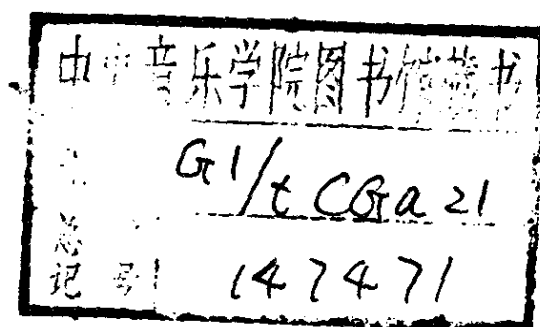 中央音乐学院图书馆藏书
G1/t CGa 21
总
记 号 147471